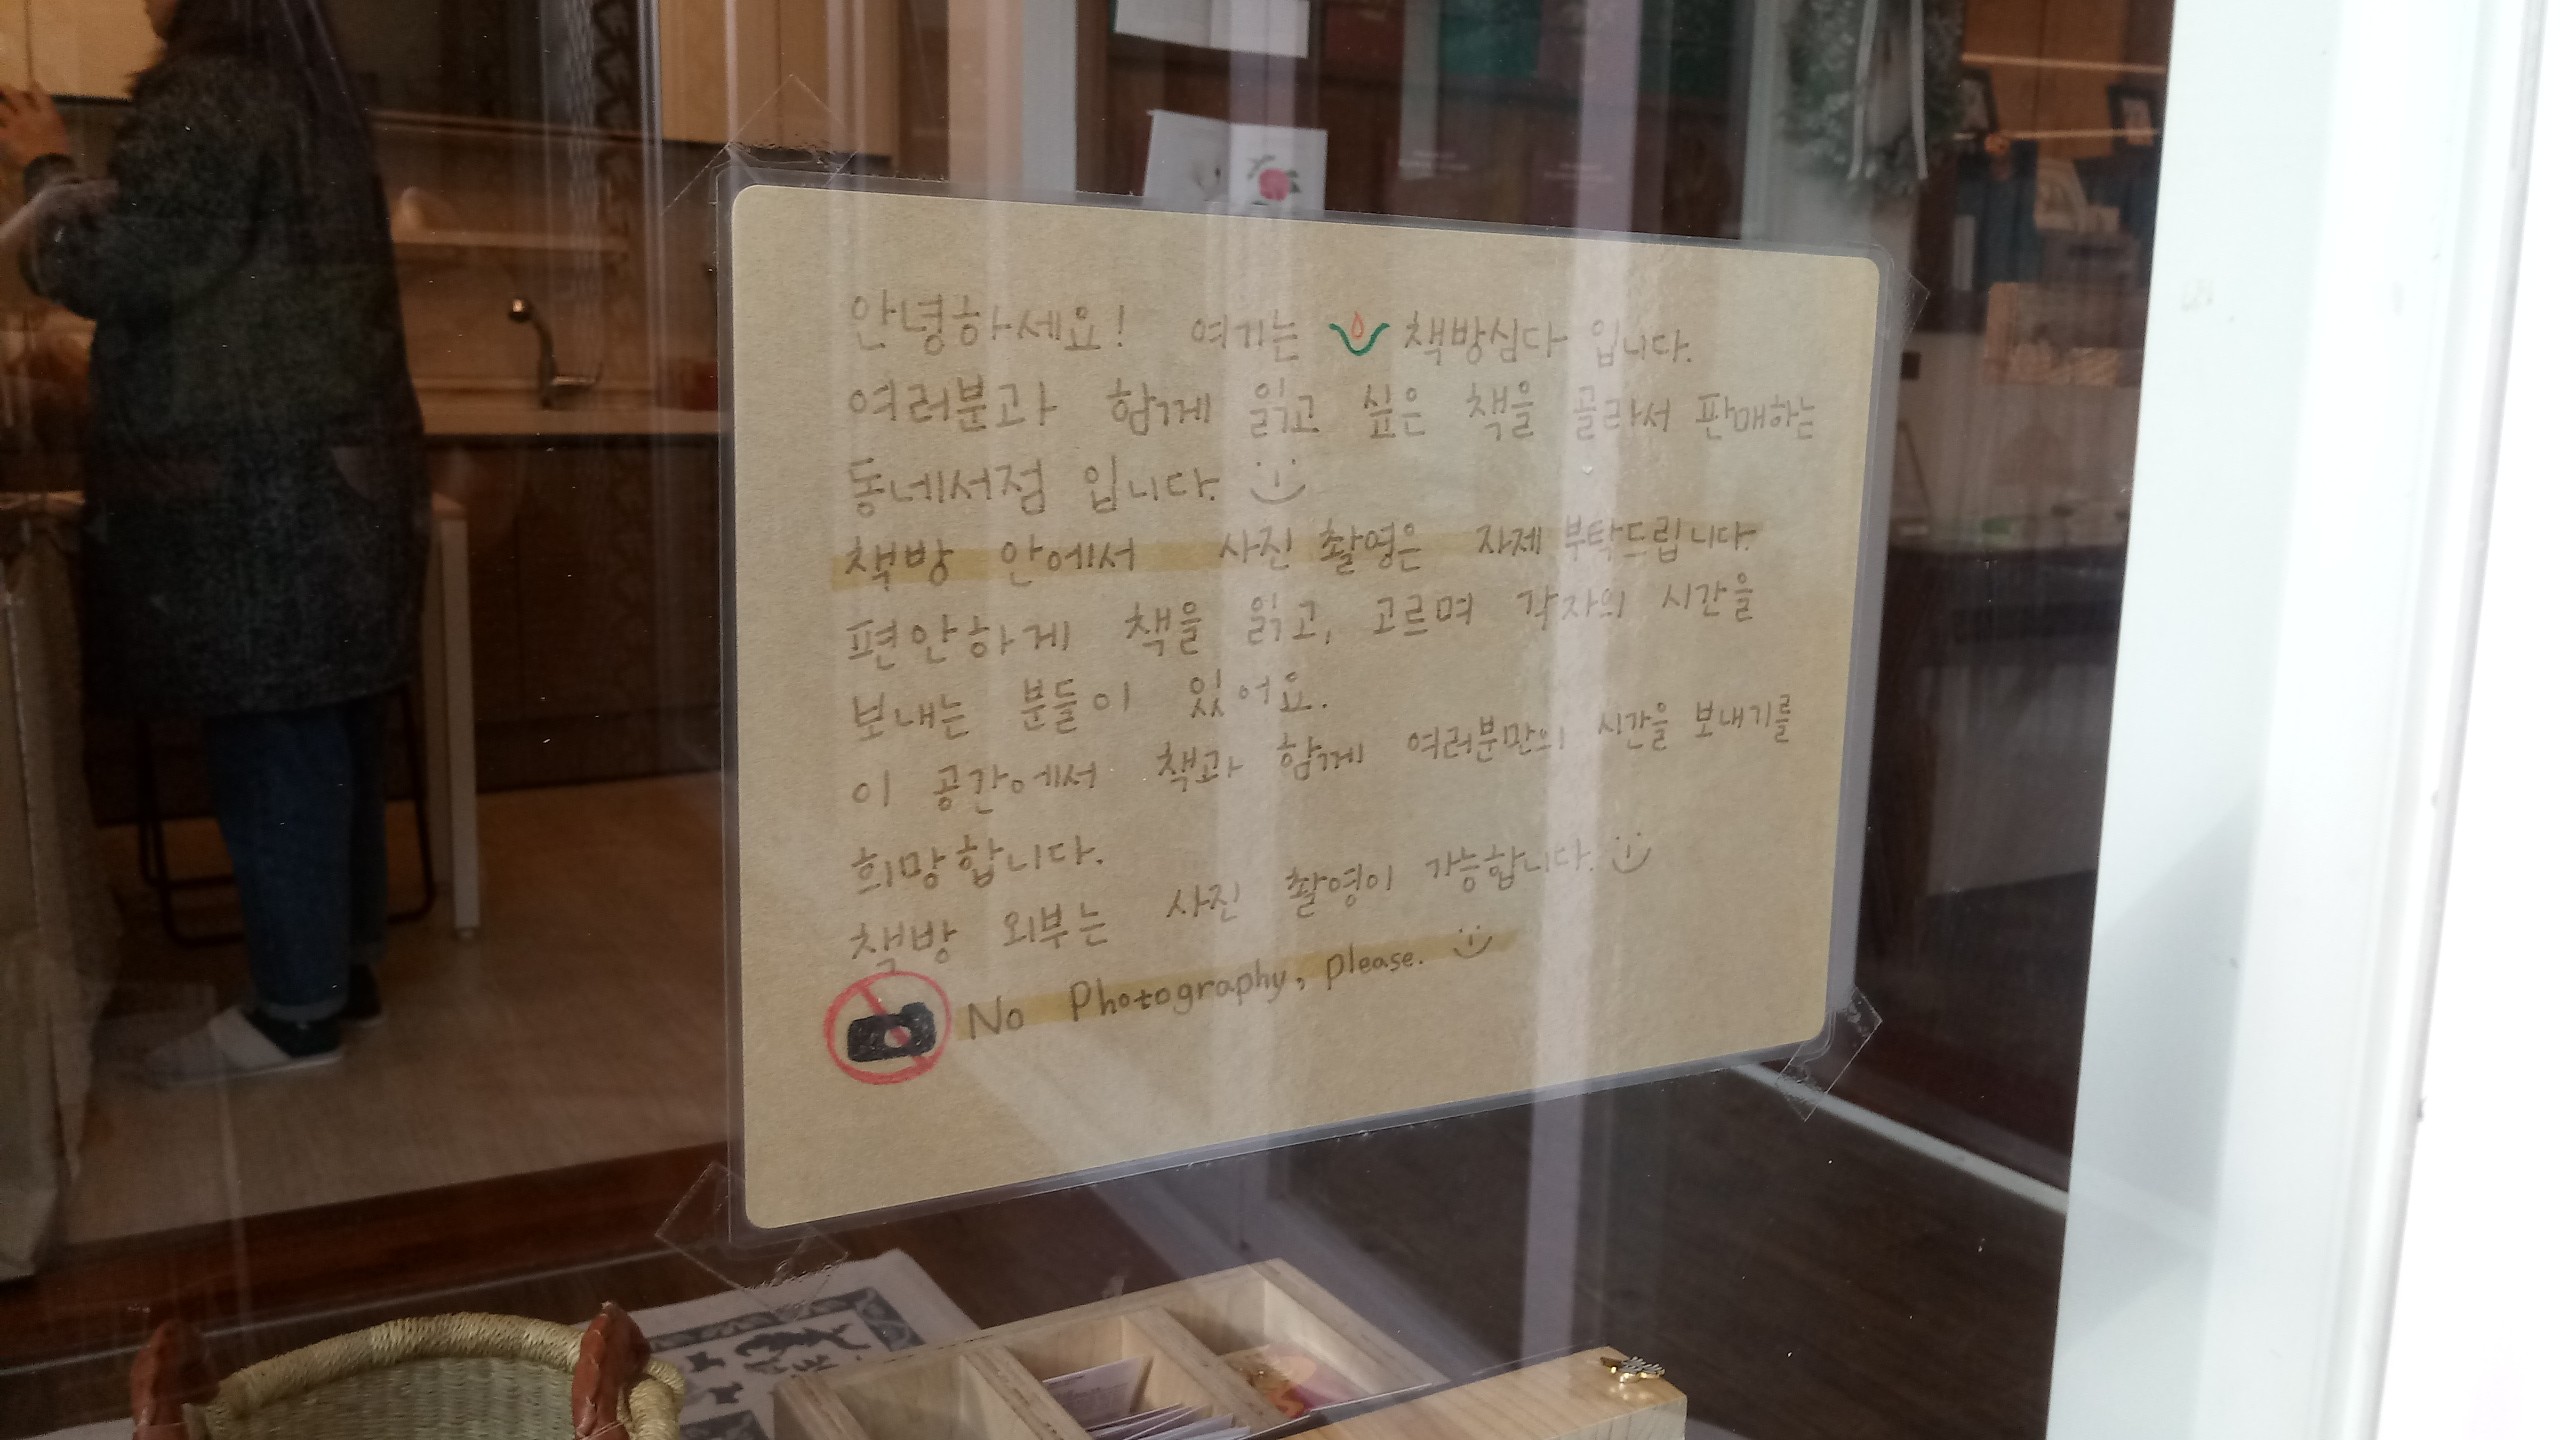 안녕하세요! 여기는 책방심다 입니다.
여러분과 함께 읽고 싶은 책을 골라서 판매하는
동네서점 입니다.
책방 안에서 사진 촬영은 자제 부탁드립니다.
편안하게 책을 읽고, 고르며 각자의 시간을
보내는 분들이 있어요.
이 공간에서 책과 함께 여러분만의 시간을 보내기를
희망합니다.
책방 외부는 사진 촬영이 가능합니다.
No Photography, please.